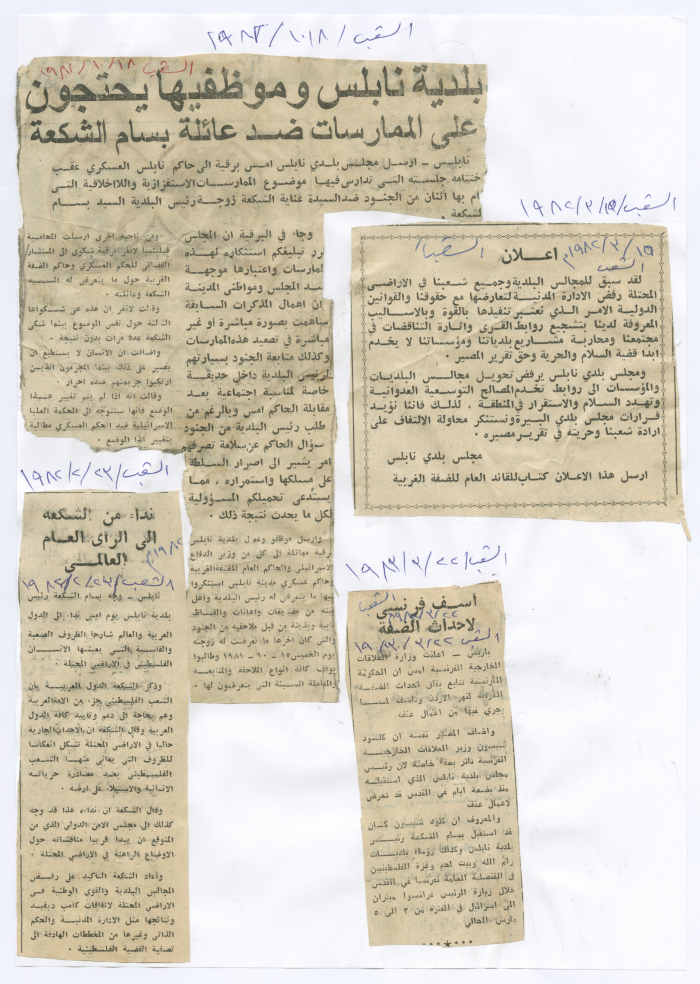 الشعب / ١٠/١٨ / ١٩٨٢
الشعب ١٨/١٠/١٩٨٢
بلدية نابلس وموظفيها يحتجون
على الممارسات ضد عائلة بسام الشكعة
نابلس – ارسل مجلس بلدي نابلس امس برقية الى حاكم نابلس العسكري عقب
ختتامه جلسته التي تدارس فيها موضوع الممارسات الاستفزازية واللااخلاقية التي
ام بها اثنان من الجنود ضد السيدة عناية الشكعة زوجة رئيس البلدية السيد بسام
لشكعة .
وجاء في البرقية ان المجلس
رر تبليغكم استنكاره لهذه
لممارسات واعتبارها موجهة
ضد المجلس ومواطني المدينة
ان اهمال المذكرات السابقة
ساهمت بصورة مباشرة أو غير
مباشرة في تصعيد هذه الممارسات
وكذلك متابعة الجنود بسيارتهم
لرئيس البلدية داخل حديقة
خاصة لمناسبة اجتماعية بعد
مقابلة الحاكم امس وبالرغم من
طلب رئيس البلدية من الجنود
سؤال الحاكم عن سلامة تصرفهم
امر يشير الى اصرار السلطة
على مسلكها واستمراره ، مما
يستدعي تحميلكم المسؤولية
لكل ما يحدث نتيجة ذلك .
وارسل موظفو وعمال بلدية نابلس
رقية مماثلة الى كل من وزير الدفاع
الاسرائيلي والحاكم العام للضفة الغربية
وحاكم عسكري مدينة نابلس استنكروا
فيها ما يتعرض له رئيس البلدية واهل
بيته من مضايقات واهانات والفاظ
نابية وبذيئة من قبل ملاحقيه من الجنود
والتي كان اخرها ما تعرضت له زوجته
يوم الخميس ١٥ – ١٠ – ١٩٨١ وطالبوا
بوقف كافة انواع الملاحقة والمتابعة
والمعاملة السيئة التي يتعرضون لها .
ومن ناحية اخرى ارسلت المحامية
فيليتسيا لانغر برقية شكوى الى المستشار
القضائي للحكم العسكري وحاكم الضفة
الغربية حول ما يتعرض له السيد
الشكعة وعائلته .
وقالت لانغر ان هذه هي شكواها
الثالثة حول نفس الموضوع بينما شكى
الشكعة عدة مرات بدون نتيجة .
واضافت ان الانسان لا يستطيع ان
يصبر على ذلك بينما المجرمون الذين
ارتكبوا جريمتهم ضده احرار .
وقالت انه اذا لم يتم تغيير هذا
الوضع فأنها ستتوجه الى المحكمة العليا
الاسرائيلية ضد الحكم العسكري مطالبة
بتغيير هذا الوضع .
الشعب / ١٥ / ٣ / ١٩٨٢
الشعب
١٩٨٢/٣/١٥م
الشعب
اعلان
لقد سبق للمجالس البلدية وجميع شعبنا في الاراضي
المحتلة رفض الادارة المدنية لتعارضها مع حقوقنا والقوانين
الدولية الامر الذي نعتبر تنفيذها بالقوة وبالاساليب
المعروفة لدينا بتشجيع روابط القرى واثارة التناقضات في
مجتمعنا ومحاربة مشاريع بلدياتنا ومؤسساتنا لا يخدم
ابدا قضية السلام والحرية وحق تقرير المصير .
ومجلس بلدي نابلس يرفض تحويل مجالس البلديات
والمؤسسات الى روابط تخدم المصالح التوسعية العدوانية
وتهدد السلام والاستقرار في المنطقة ، لذلك فاننا نؤيد
قرارات مجلس بلدي البيرة ونستنكر محاولة الالتفاف على
ارادة شعبنا وحريته في تقرير مصيره .
مجلس بلدي نابلس
ارسل هذا الاعلان كتاب للقائد العام للضفة الغربية
الشعب / ٢٣ / ٢ / ١٩٨٢
نداء من الشكعه
الى الرأى العام
العالمي
الشعب / ٢٣ / ٢ / ١٩٨٢
نابلس – وجه بسام الشكعة رئيس
بلدية نابلس يوم امس نداء الى الدول
العربية والعالم شارحا الظروف الصعبة
والقاسية التي يعيشها الانسان
الفلسطيني في الاراضي المحتلة .
وذكر الشكعة الدول العربية بأن
الشعب الفلسطيني جزء من الامة العربية
وهم بحاجة الى دعم وتأييد كافة الدول
العربية وقال الشكعة ان الاحداث الجارية
حاليا في الاراضي المحتلة تشكل انعكاسا
للظروف التي يعاني منها الشعب
الفلسطيني بعد مصادرة حرياته
الانسانية والاستيلاء على ارضه .
وقال الشكعة ان نداءه هذا قد وجه
كذلك الى مجلس الامن الدولي الذي من
المتوقع ان يبدأ قريبا مناقشاته حول
الاوضاع الراهنة في الاراضي المحتلة .
وأعاد الشكعة التأكيد على رفض
المجالس البلدية والقوى الوطنية في
الاراضي المحتلة لاتفاقات كامب ديفيد
ونتائجها مثل الادارة المدنية والحكم
الذاتي وغيرها من المخططات الهادفة الى
تصفية القضية الفلسطينية .
الشعب / ٢٢ / ٣ / ١٩٨٢
الشعب
أسف فرنسي
لاحداث الضفة
الشعب ٢٢ / ٣ / ١٩٨٢
باريس – اعلنت وزارة العلاقات
الخارجية الفرنسية امس ان الحكومة
الفرنسية تتابع بقلق احداث الضفة
الغربية لنهر الاردن وتأسف لما
يجري فيها من اعمال عنف
واضاف المصدر نفسه ان كلود
شيسون وزير العلاقات الخارجية
الفرنسية تأثر بصفة خاصة لان رئيس
مجلس بلدية نابلس الذي استقبله
منذ بضعة ايام في القدس قد تعرض
لاعمال عنف
والمعروف ان كلود شيسون كان
قد استقبل بسام الشكعة رئيس
بلدية نابلس وكذلك رؤساء بلديات
رام الله وبيت لحم وغزة الفلسطينيين
في القنصلية العامة لفرنسا في القدس
خلال زيارة الرئيس فرانسوا ميتران
الى اسرائيل في الفترة من ٣ الى ٥
مارس الحالي